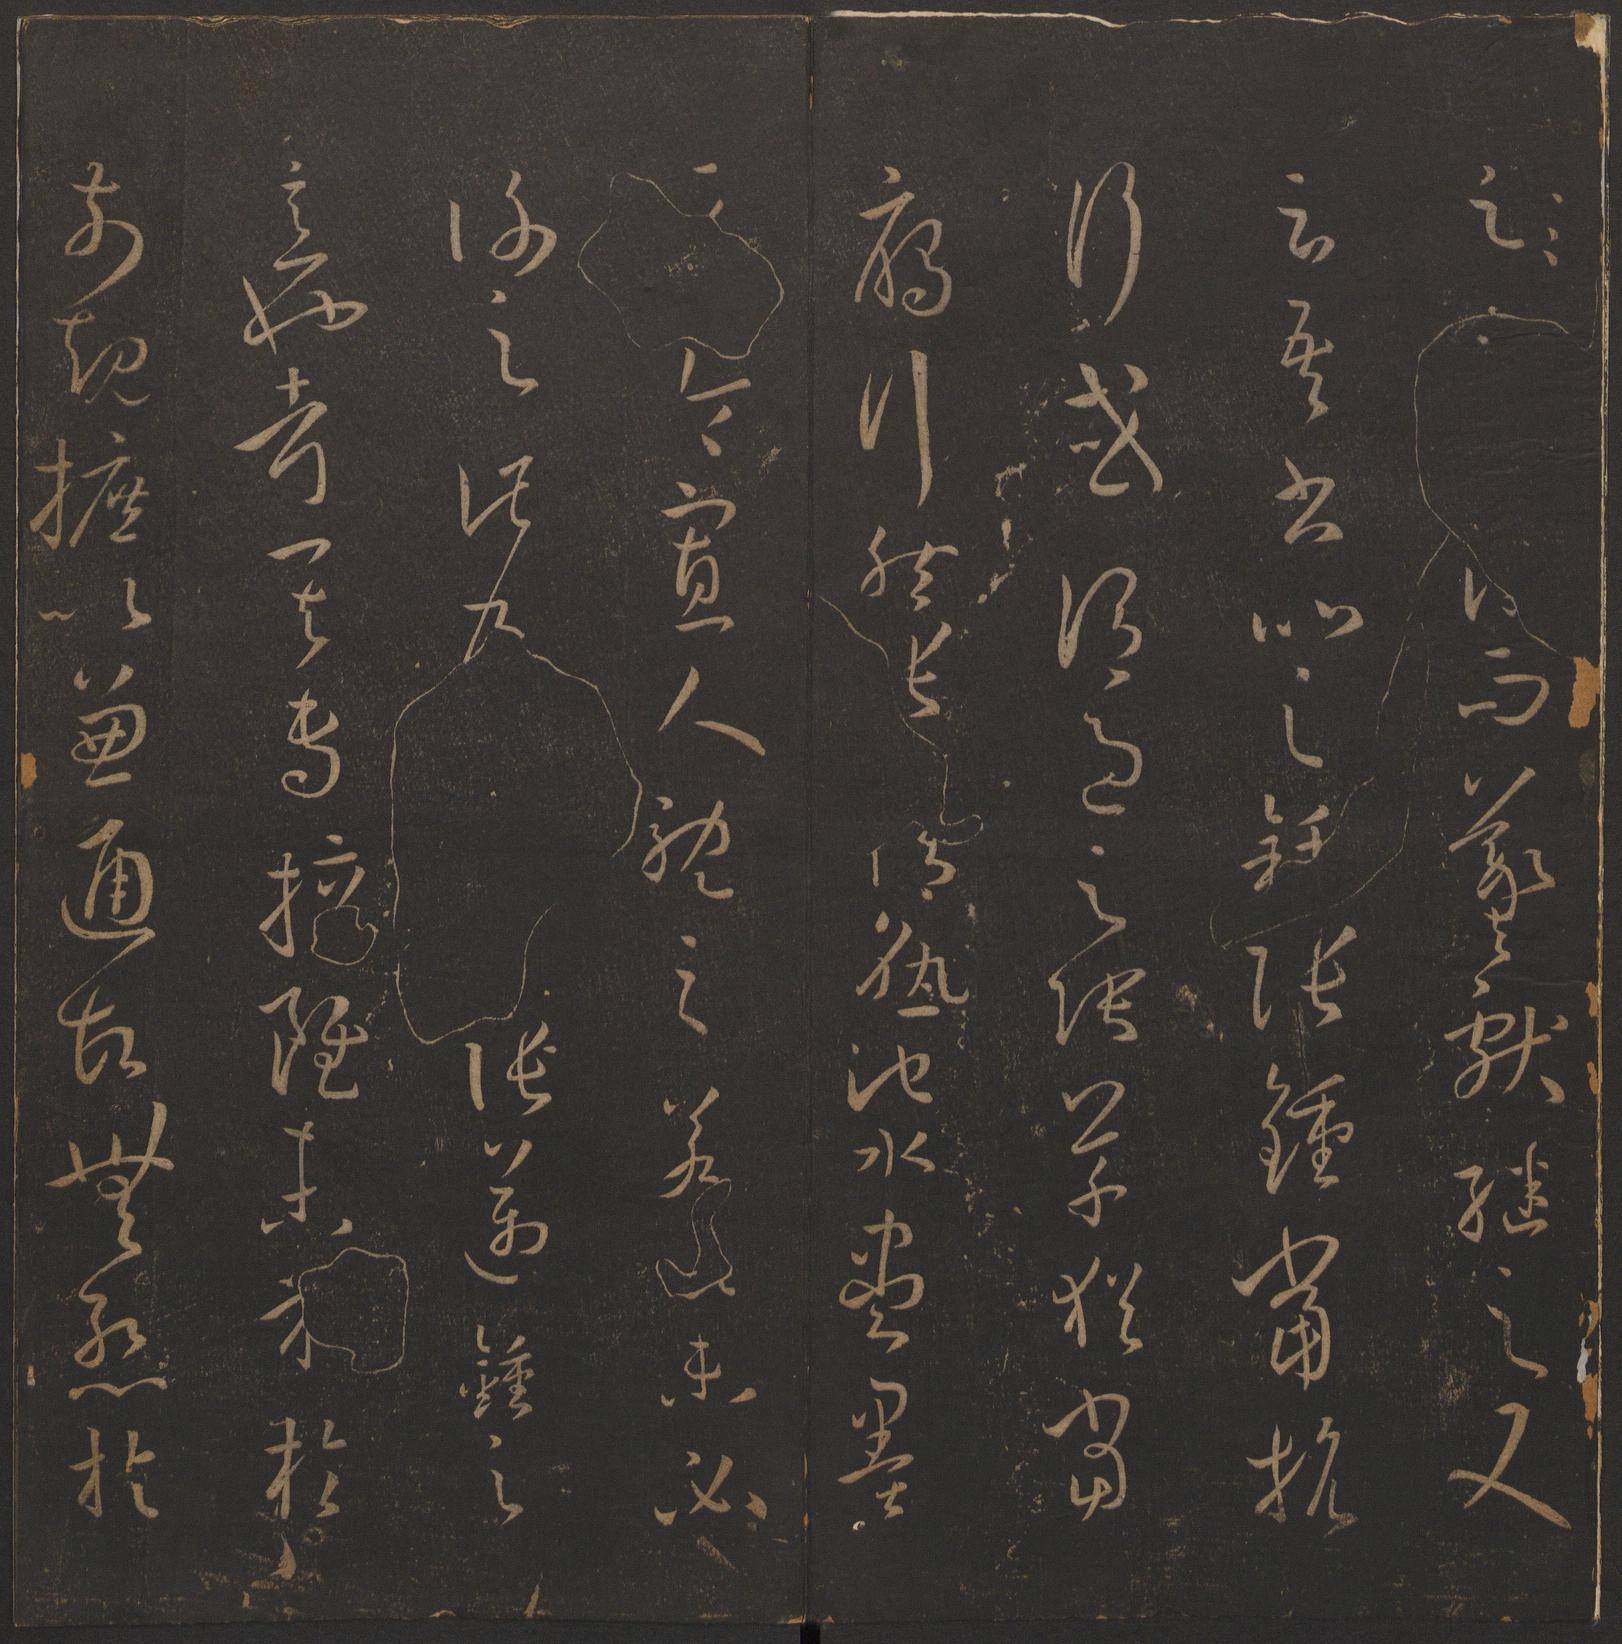 而羲獻繼之又
云吾書比之鍾張鍾當抗
行或謂過之張草猶當
鴈行然張精熟池水盡墨
令寡人耽之若此未必
謝之此乃張邁鍾之
意也考其專擅雖未果於
前規摭以兼通故無慚於